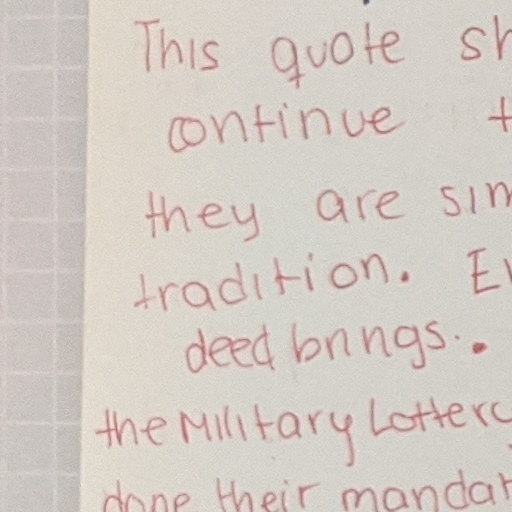 This quote sh
continue t
they are sim
tradition. Ev
deed brings..
the Military Lottery
done their mandat